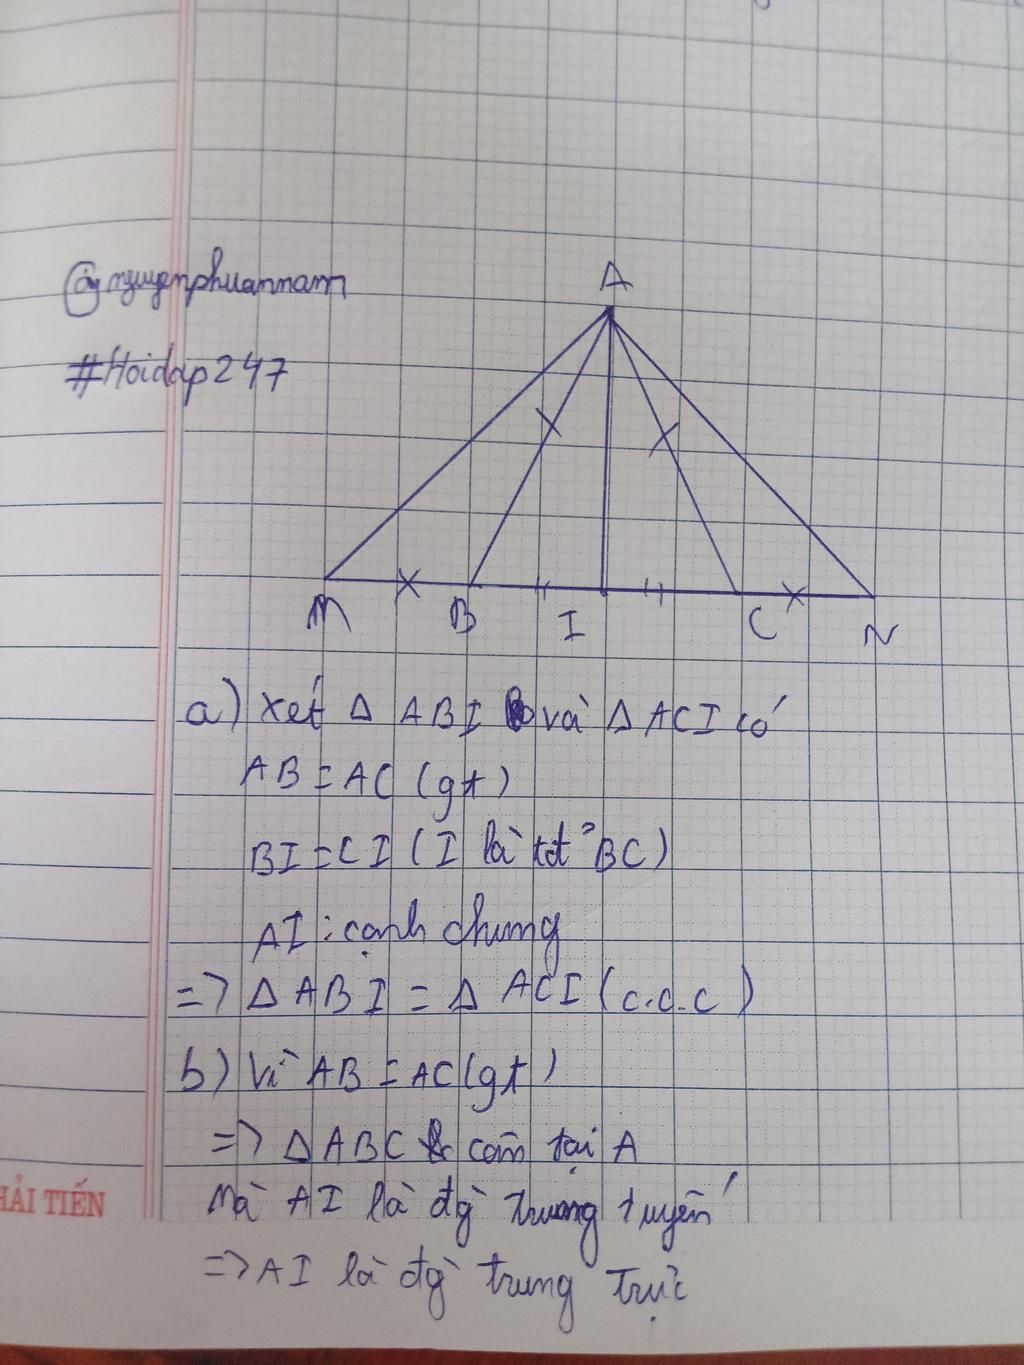 @nguyenphuannam
#Hoidap247
A
M B I C N
a) Xét Δ ABI và Δ ACI có
AB = AC (gt)
BI = CI (I là tđ BC)
AI : cạnh chung
=> Δ ABI = Δ ACI (c.c.c)
b) Vì AB = AC (gt)
=> Δ ABC cân tại A
Mà AI là đg` trung tuyến
=> AI là đg` trung trực
HẢI TIẾN